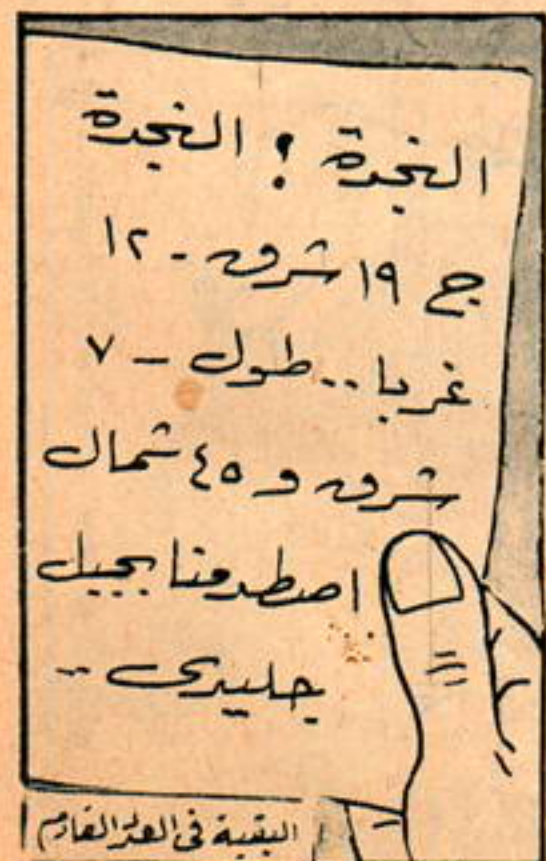 النجدة ! النجدة
ج ١٩ شرق - ١٢
غربا .. طول - ٧
شرق و ٤٥ شمال
اصطدمنا بجبل
جليدى ..
البقية فى العدد القادم